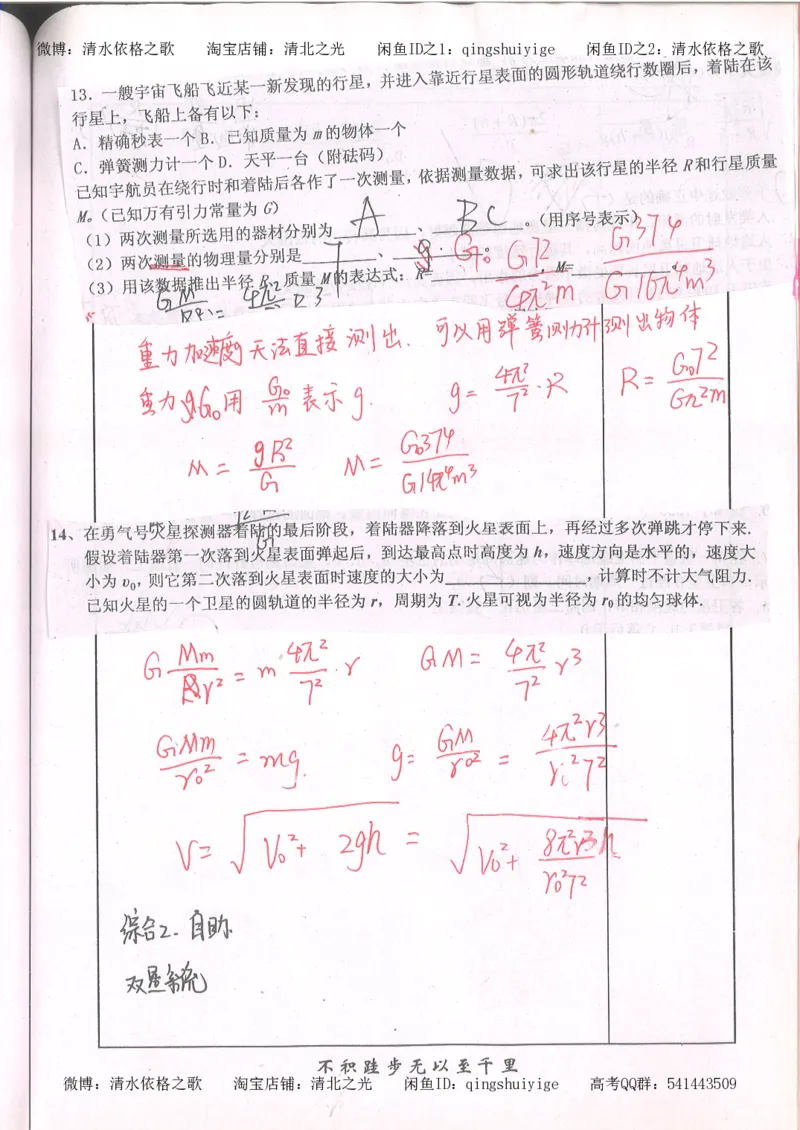 微博：清水依格之歌 淘宝店铺：清北之光 闲鱼ID之1：qingshuiyige 闲鱼ID之2：清水依格之歌
13．一艘宇宙飞船飞近某一新发现的行星，并进入靠近行星表面的圆形轨道绕行数圈后，着陆在该
行星上，飞船上备有以下：
A．精确秒表一个 B．已知质量为 m 的物体一个
C．弹簧测力计一个 D．天平一台（附砝码）
已知宇航员在绕行时和着陆后各作了一次测量，依据测量数据，可求出该行星的半径 R 和行星质量
M。（已知万有引力常量为 G）
（1）两次测量所选用的器材分别为 A 、 BC 。（用序号表示）
（2）两次测量的物理量分别是 T 、 G₀ ；
（3）用该数据推出半径 R、质量 M 的表达式：R= G₀T²/4π²m ，M= G₀³T⁴/G16π⁴m³
重力加速度无法直接测出．可以用弹簧测力计测出物体
重力G₀用 G₀/m 表示g． g= 4π²/T²·R R= G₀T²/Gπ²m
M= gR²/G M= G₀³T⁴/G14π⁴m³
14、在勇气号火星探测器着陆的最后阶段，着陆器降落到火星表面上，再经过多次弹跳才停下来．
假设着陆器第一次落到火星表面弹起后，到达最高点时高度为 h，速度方向是水平的，速度大
小为 v₀，则它第二次落到火星表面时速度的大小为 ，计算时不计大气阻力．
已知火星的一个卫星的圆轨道的半径为 r，周期为 T．火星可视为半径为 r₀ 的均匀球体．
G Mm/r² = m·4π²/T²·r GM= 4π²/T² r³
GMm/r₀² = mg． g= GM/r₀² = 4π²r³/r₀²T²
V= √(V₀²+2gh) = √(V₀²+8π²r³h/r₀²T²)
综合2．自助
双星系统
不积跬步无以至千里
微博：清水依格之歌 淘宝店铺：清北之光 闲鱼ID：qingshuiyige 高考QQ群：541443509